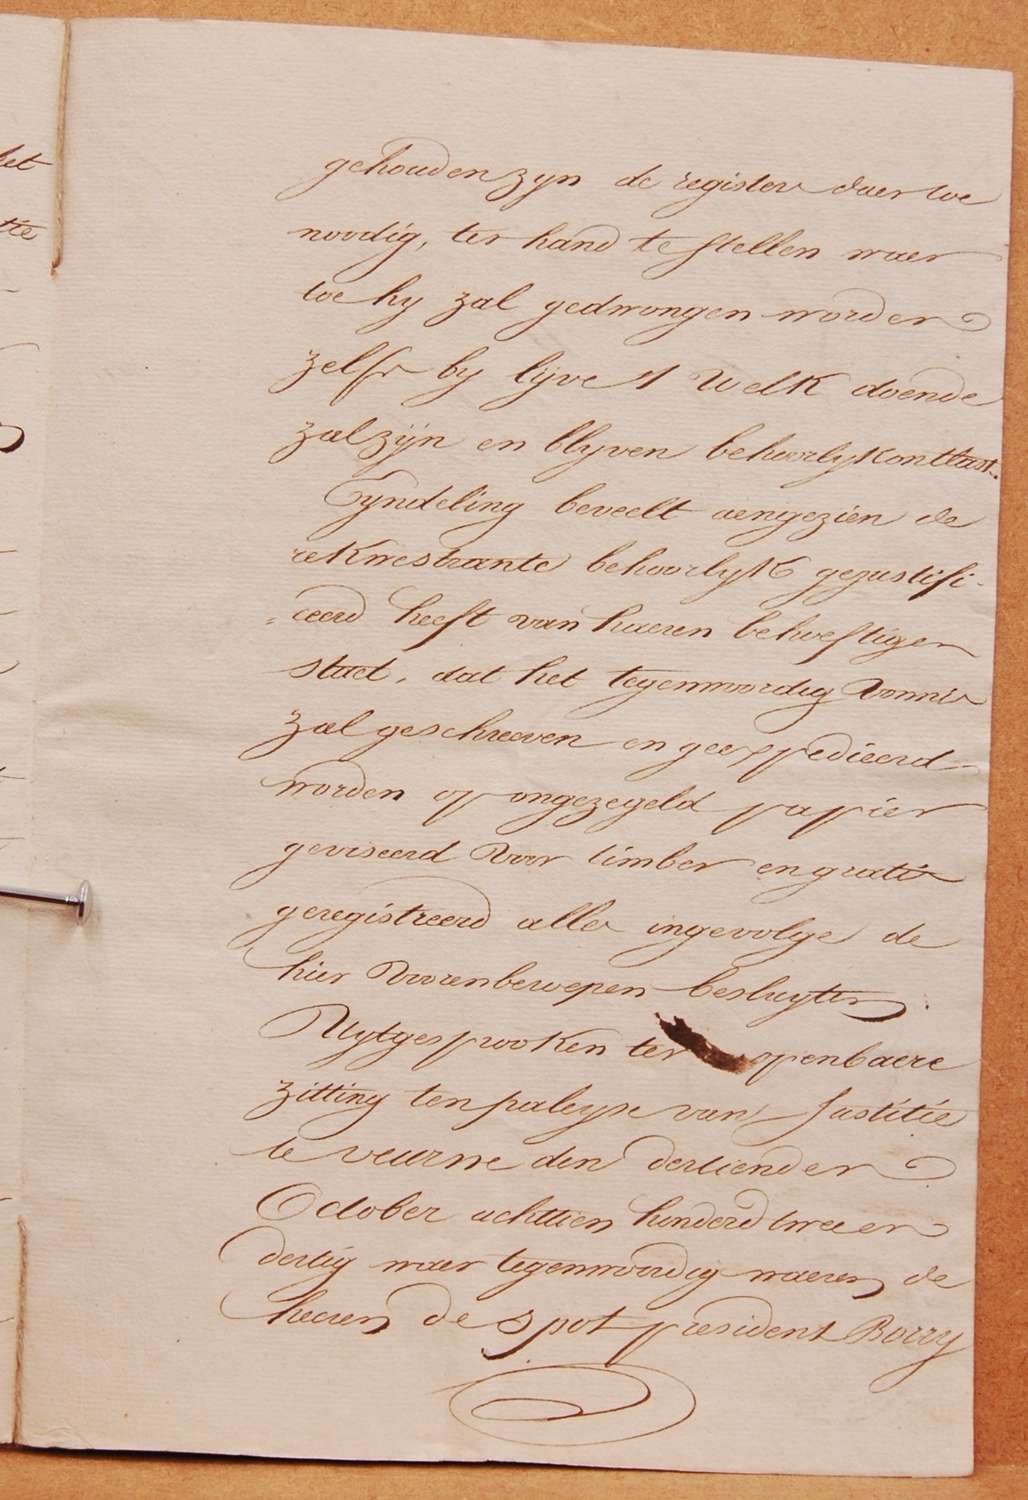 het
tie
gehouden zyn de registers daer toe
noodig, ter hand te stellen waer
toe hy zal gedwongen worden
zelfs by lyve 't welk doende
zal zijn en blyven behoorlyk ontlast.
Eyndeling beveelt aengezien de
rekwestrante behoorlyk gejustifi-
=ceerd heeft van haeren behoeftigen
staet, dat het tegenwoordig vonnis
zal geschreeven en geexpedieerd
worden op ongezegeld papier
geviseerd voor timber en gratis
geregistreerd alles ingevolge de
hier voorenbewepen besluyten.
Uytgesprooken ter openbaere
zitting ten paleyse van Justitie
te veurne den dertienden
October achttien honderd twee en
dertig waer tegenwoordig waeren de
heeren de spot president Borry